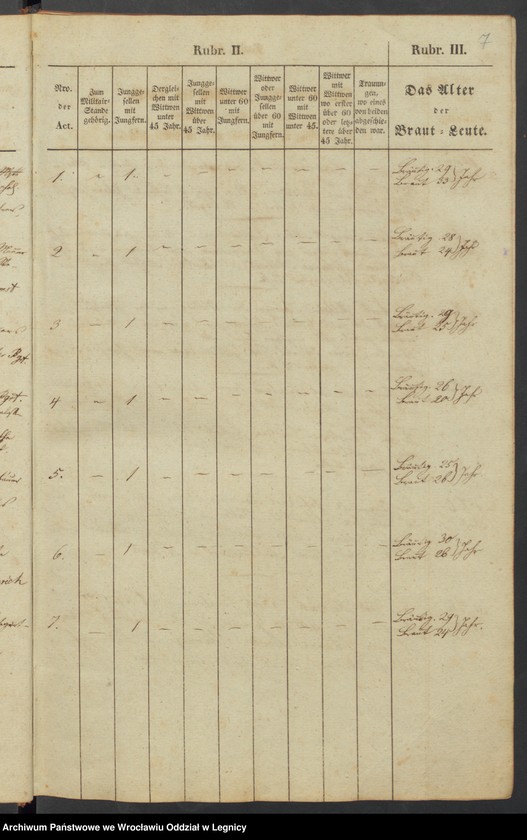 7
Rubr. II.
Rubr. III.
Nro. der Act.
Zum Militair- Stande gehörig.
Jungge- sellen mit Jungfern.
Derglei- chen mit Wittwen unter 45 Jahr.
Jungge- sellen mit Wittwen über 45 Jahr.
Wittwer unter 60 mit Jungfern.
Wittwer oder Jungge- sellen über 60 mit Jungfern.
Wittwer unter 60 mit Wittwen unter 45.
Wittwer mit Wittwen wo erster über 60 oder letz- tere über 45 Jahr.
Trauun- gen, wo eines von beiden abgeschie- den war.
Das Alter
der
Braut-Leute.
1. – 1. – – – – – – – Bräutig. 29
Braut 33 Jahr
2 – 1 – – – – – – – Bräutig. 28
Braut 24 Jahr
3 – 1 – – – – – – – Bräutig. 29
Braut 25 Jahr
4 – 1 – – – – – – – Bräutig. 26
Braut 20 Jahr
5. – 1 – – – – – – – Bräutig. 25
Braut 26 Jahr
6. – 1 – – – – – – – Bräutig. 30
Braut 26 Jahr
7. – 1 – – – – – – – Bräutig. 29
Braut 24 Jahr.
Archiwum Państwowe we Wrocławiu Oddział w Legnicy